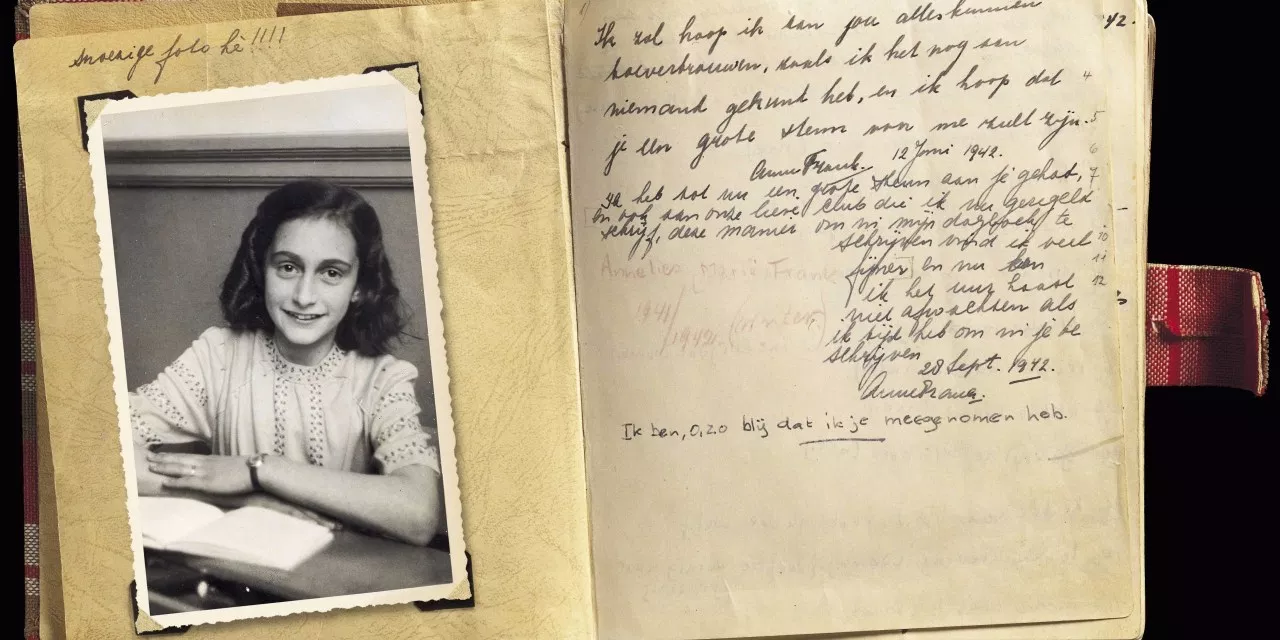 snoezige foto hè!!!!
42.
Ik zal hoop ik aan jou alles kunnen
toevertrouwen, zoals ik het nog aan
niemand gekunt heb, en ik hoop dat 4
je een grote steun voor me zult zijn. 5
Anne Frank. 12 Juni 1942. 6
Ik heb tot nu een grote steun aan je gehad, 7
en ook aan onze lieve club die ik nu geregeld
schrijf, deze manier om in mijn dagboek te
schrijven vind ik veel 10
fijner en nu ben 11
ik het uur haast 12
niet afwachten als
ik tijd heb om in je te
schrijven
28 Sept. 1942.
Anne Frank.
Annelies Marie Frank
1941/
1942.
Ik ben, o, zo blij dat ik je meegenomen heb.